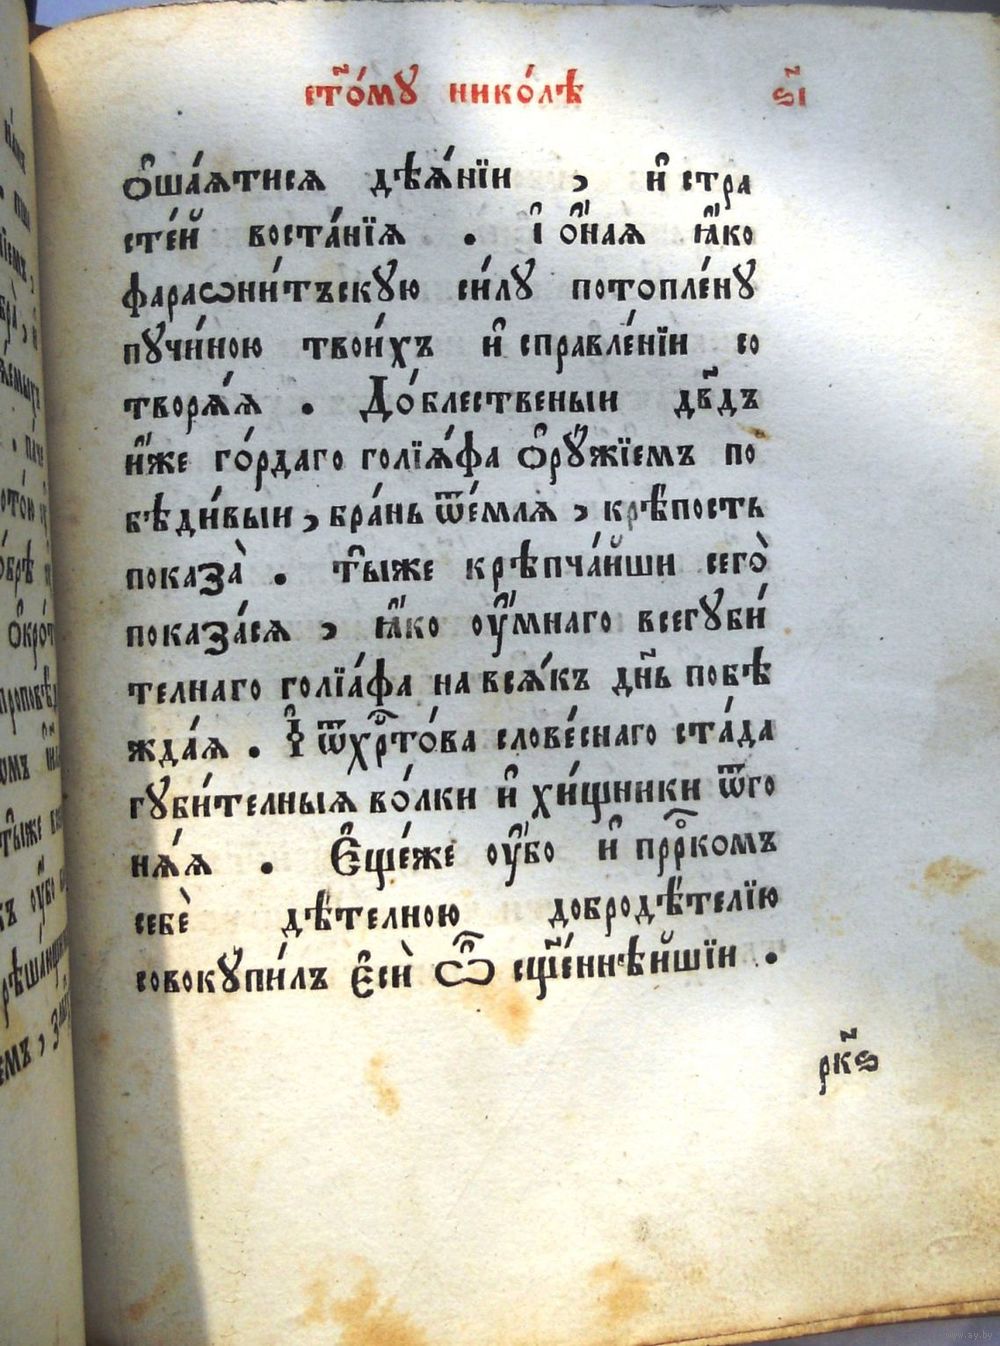 ст҃о́мꙋ нико́лѣ ѕ҃і
ѻ҆ша́ѧтисѧ дѣѧ́нїи , и҆ стра
сте́й воста́нїѧ . І҆ ѻ҆́наѧ ꙗ҆́ко
фараѡни́тъскꙋю си́лꙋ потопле́нꙋ
пꙋчи́ною твои́хъ и҆справле́нїи со
творѧ́ѧ . До́блественыи дв҃дъ
и҆́же го́рдаго голїѧ́фа ѻ҆рꙋ́жїемъ по
бѣди́выи , бра́нь ѿе́млѧ , крѣ́пость
показа̀ . ты́же крѣпча́йши сего̀
показа́сѧ , ꙗ҆́ко оу҆́мнаго всегꙋби́
телнаго голїа́фа на всѧ́къ дн҃ь побѣ
жда́ѧ . І҆ ѿхрⷭ҇то́ва слове́снаго ста́да
гꙋби́телныѧ во́лки и҆ хи́щники ѿго
нѧ́ѧ . Є҆ще́же оу҆́бо и҆ прⷪ҇ркомъ
себѐ дѣ́телною добродѣ́телїю
совокꙋпи́лъ є҆сѝ ѽ сщ҃е́ннѣйшїи .
рк҃ѕ